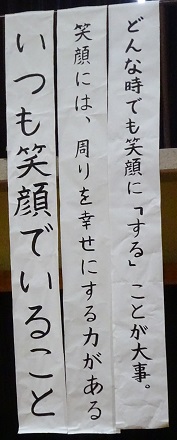 どんな時でも笑顔に「する」ことが大事。
笑顔には、周りを幸せにする力がある
いつも笑顔でいること